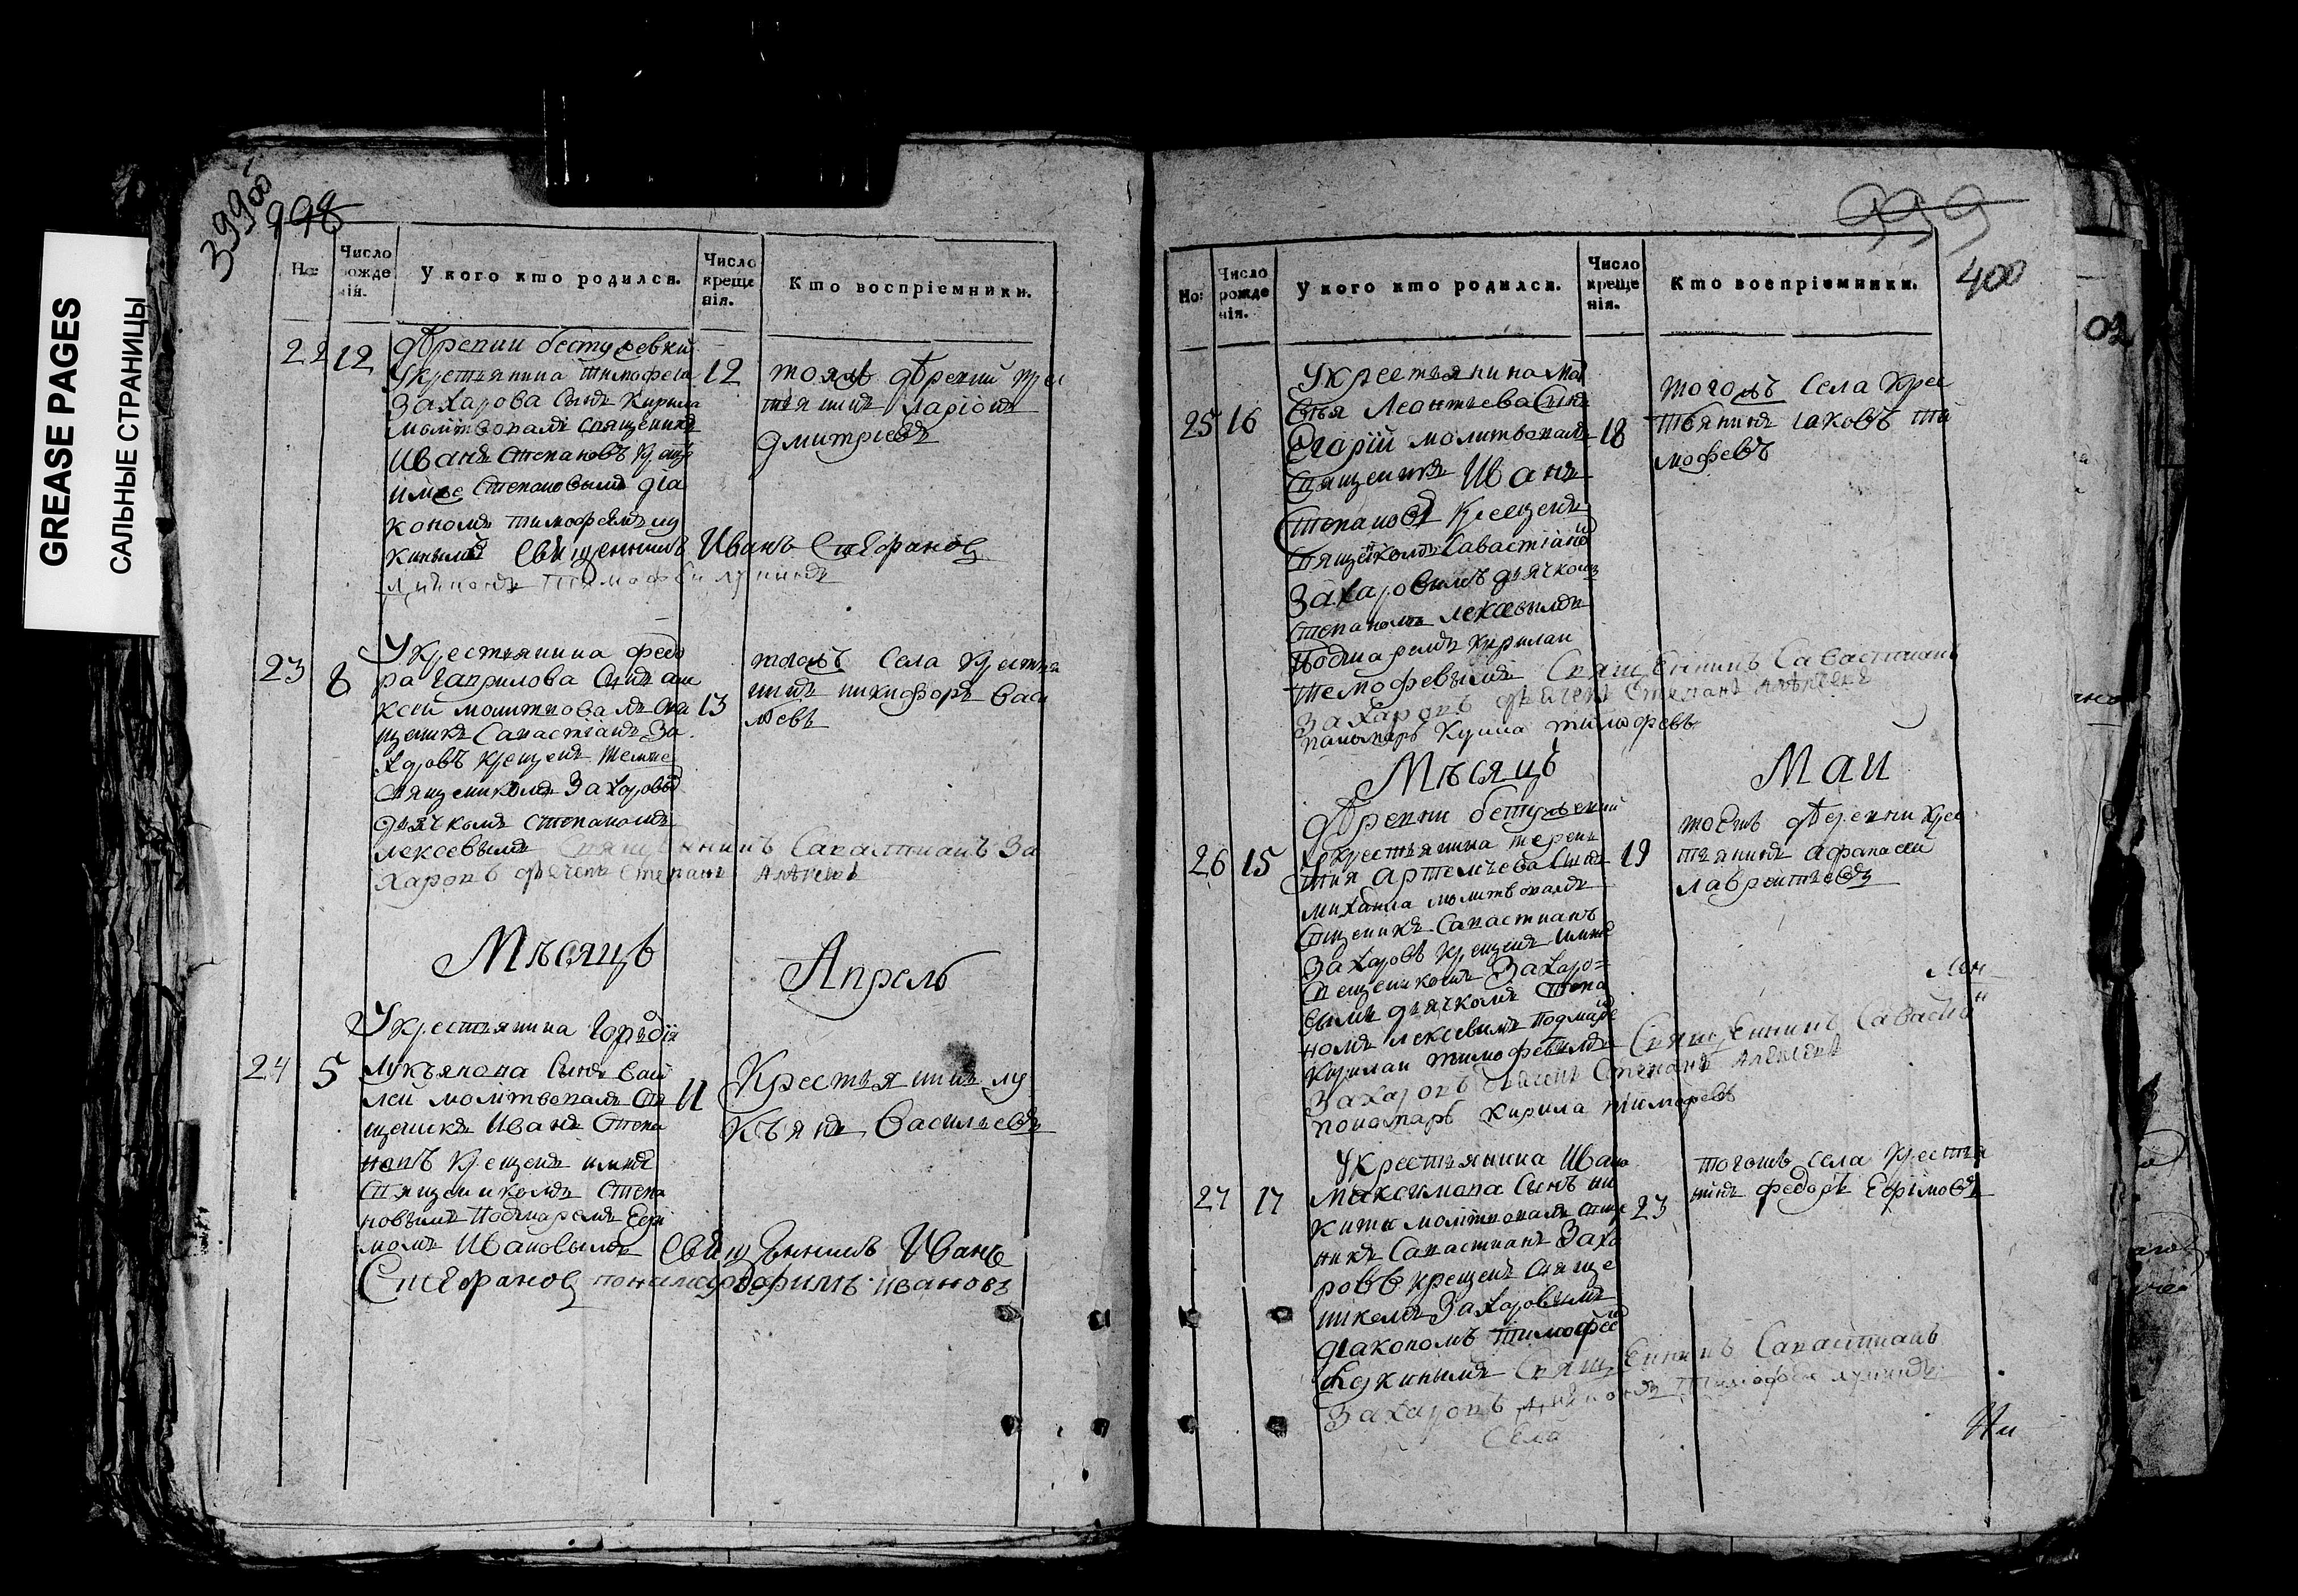 GREASE PAGES
САЛЬНЫЕ СТРАНИЦЫ
399об
998
Но:
Число рожденія.
У кого кто родился.
Число крещенія.
Кто воспріемники.
22 12
дѣревни
У крестьянина тимофея
Захарова сынъ Кирила
молитвовалъ священникъ
Иванъ Степановъ
имже Степановымъ дїа
кономъ тимофеемъ лу
кинымъ Священникъ Иванъ Стефановъ
Тимофѣй лукинъ
12
тояжъ дѣревни крес
тьянинъ ларіонъ
дмитріевъ
23 8
У крестьянина федо
ра гаврилова сынъ але
ксѣй молитвовалъ свя
щеникъ Савастіанъ За
харовъ крещенъ темже
священикомъ Захаровы
дьячкомъ степаномъ
лексевымъ Священникъ Савастианъ За
харовъ дьячекъ Степанъ Алѣксѣевъ
13
тогожъ Села крестья
нинъ никифоръ васи
льевъ
Мѣсяцъ Апрель
24 5
У крестьянина
лукъянова сынъ васи
лей молитвовалъ свя
щеникъ Иванъ Степа
новъ крещенъ имже
священикомъ Степа
новымъ понамаремъ Ефи
момъ Ивановымъ Священникъ Иванъ
Стефановъ понамарь Ефимъ ивановъ
11
Крестьянинъ лу
къянъ Васильевъ
999
400
Но:
Число рожденія.
У кого кто родился.
Число крещенія.
Кто воспріемники.
25 16
У крестьянина
Леонтьева сынъ
Егорій молитвовалъ
священикъ Иванъ
Степановъ крещенъ
священикомъ Савастіаномъ
Захаровымъ дьячкомъ
степаномъ лексевымъ
понамаремъ кирилаи
темофевымъ Священникъ Савастианъ
Захаровъ дьячекъ Степанъ Алѣксѣевъ
панамарь Кирила тимофевъ
18
тогожъ Села крес
тьянинъ іаковъ ти
мофевъ
Мѣсяцъ Маи
26 15
дѣревни
У крестьянина терен
тия Артемьева сынъ
михаила молитвовалъ
священикъ Савастианъ
Захаровъ крещенъ имже
священикомъ Захаро=
вымъ дьячкомъ степа
номъ лексевимъ понамаре
кирилаи тимофевымъ Священникъ Савастиан
Захаровъ дьячекъ Степанъ Алѣксѣевъ
пономарь Кирила тимофевъ
19
тоежъ дѣревни крес
тьянинъ афанасеи
лаврентьевъ
27 17
У крестьянина Ивана
максимова сынъ ни
кита молитвовалъ свяще
никъ Савастианъ Заха
ровъ крещенъ свяще
никомъ Захаровымъ
діакономъ тимофѣе
лукинымъ Священникъ Савастианъ
Захаровъ Тимофѣи лукинъ
Села
23
тогожъ села крестья
нинъ федоръ Ефимовъ
Ни